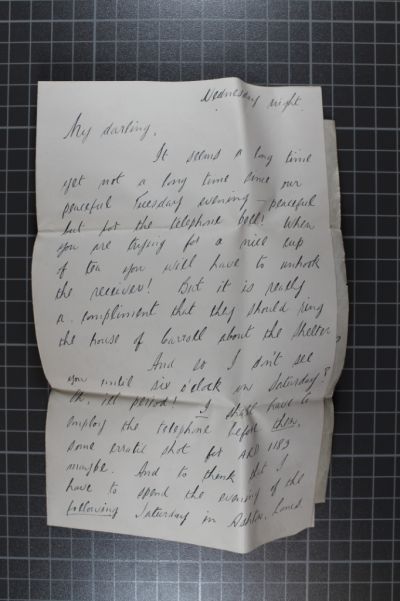 Wednesday night.
My darling,
It seems a long time
yet not a long time since our
peaceful Tuesday evening – peaceful
but for the telephone bell! When
you are trying for a nice cup
of tea you will have to unhook
the receiver! But it is really
a compliment that they should ring
the house of Carroll about the shelter
And so I don't see
you until six o'clock on Saturday?
period! I shall have to
employ the telephone before then,
some erratic shot for ARD 1183
maybe. And to think that I
have to spend the evening of the
following Saturday in Ashton, Lancs